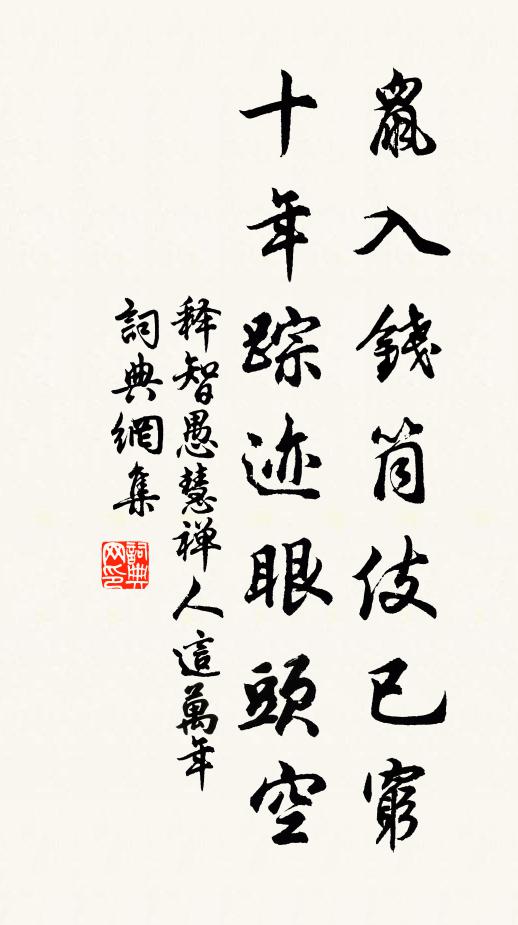 鼠入錢筒伎已窮
十年踪迹眼頭空
释智愚慧禅人這萬年
詞典網集
詞典网印